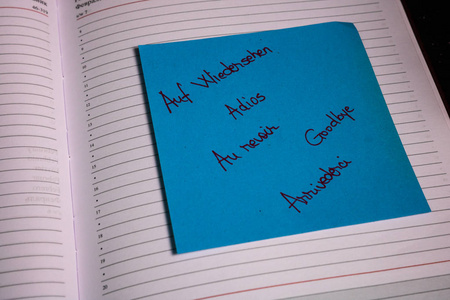 Auf Wiedersehen
Adios
Au revoir
Goodbye
Arrivederci